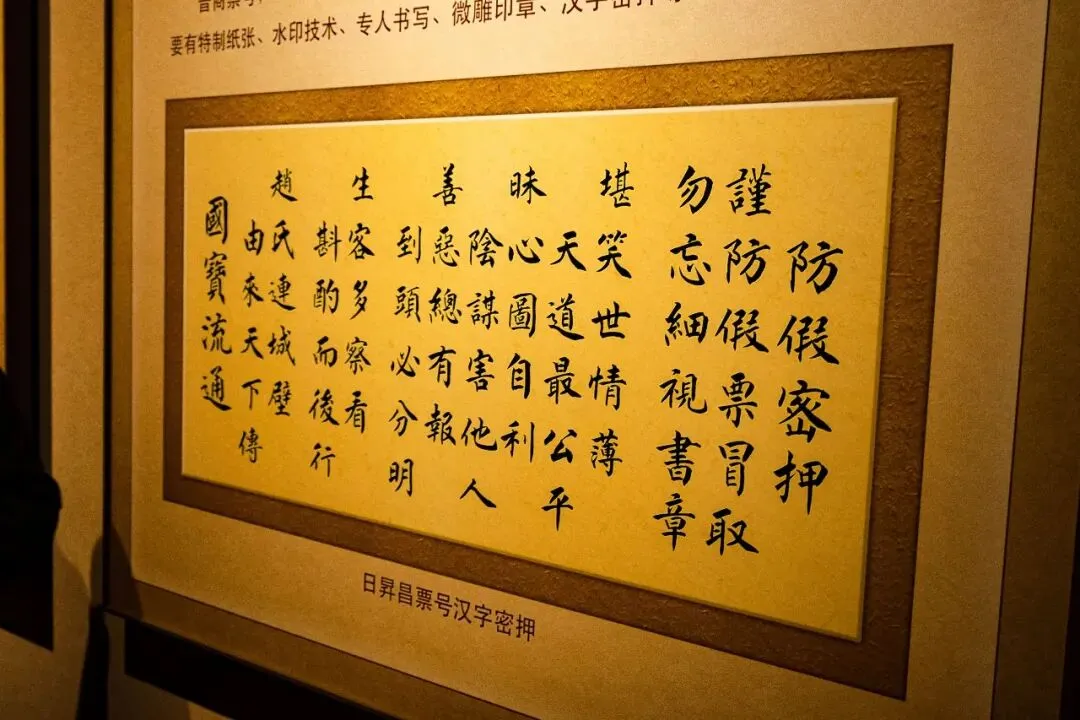 晋商票号,
要有特制纸张、水印技术、专人书写、微雕印章、汉字密押
防假密押
謹防假票冒取
勿忘細視書章
堪笑世情薄
天道最公平
昧心圖自利
陰謀害他人
善惡總有報
到頭必分明
生客多察看
斟酌而後行
趙氏連城壁
由來天下傳
國寶流通
日昇昌票号汉字密押